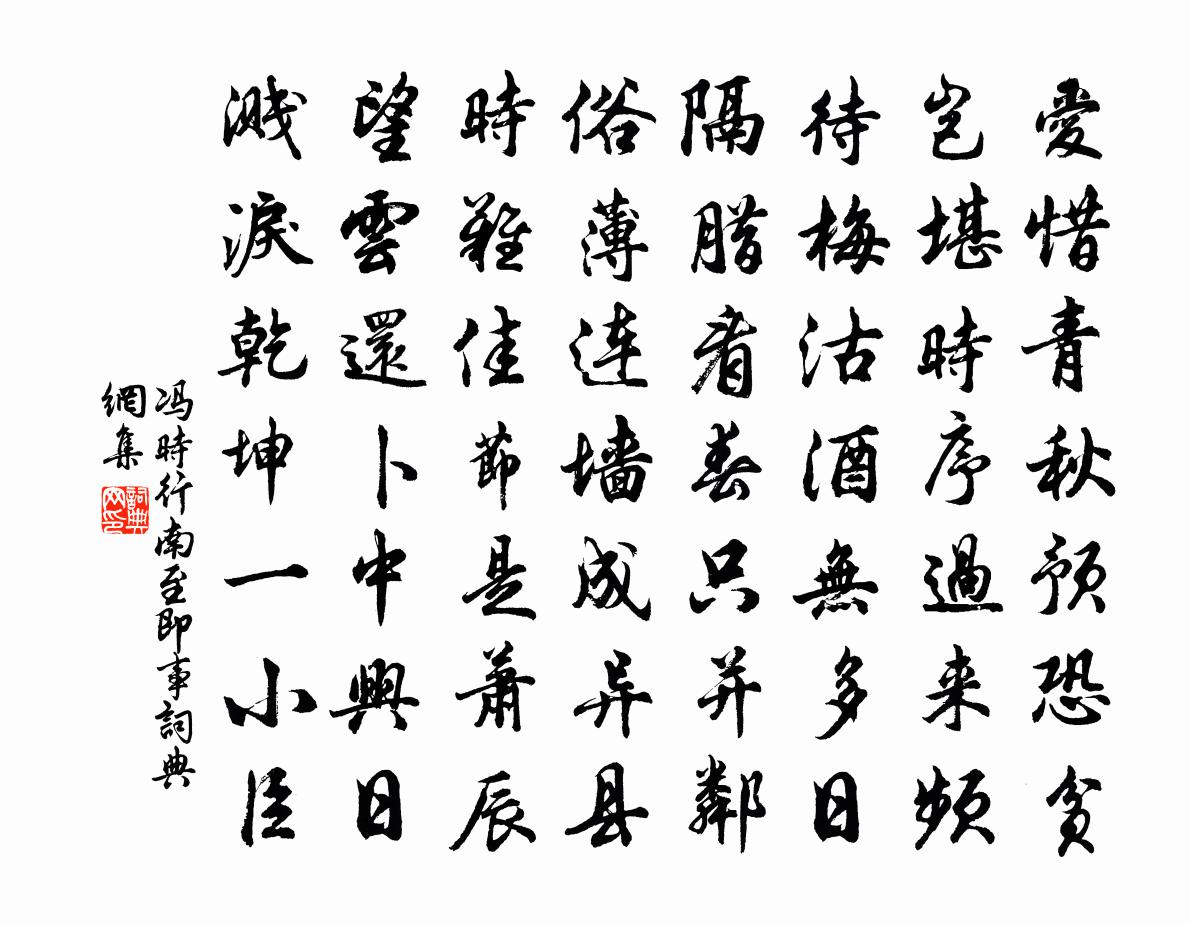 愛惜青秋预恐貧
豈堪時序過来頻
待梅沽酒無多日
隔腊看春只并鄰
俗薄连墙成异县
時難佳節是蕭辰
望雲還卜中興日
濺淚乾坤一小臣
冯時行南至即事詞典
網集
詞典
网印